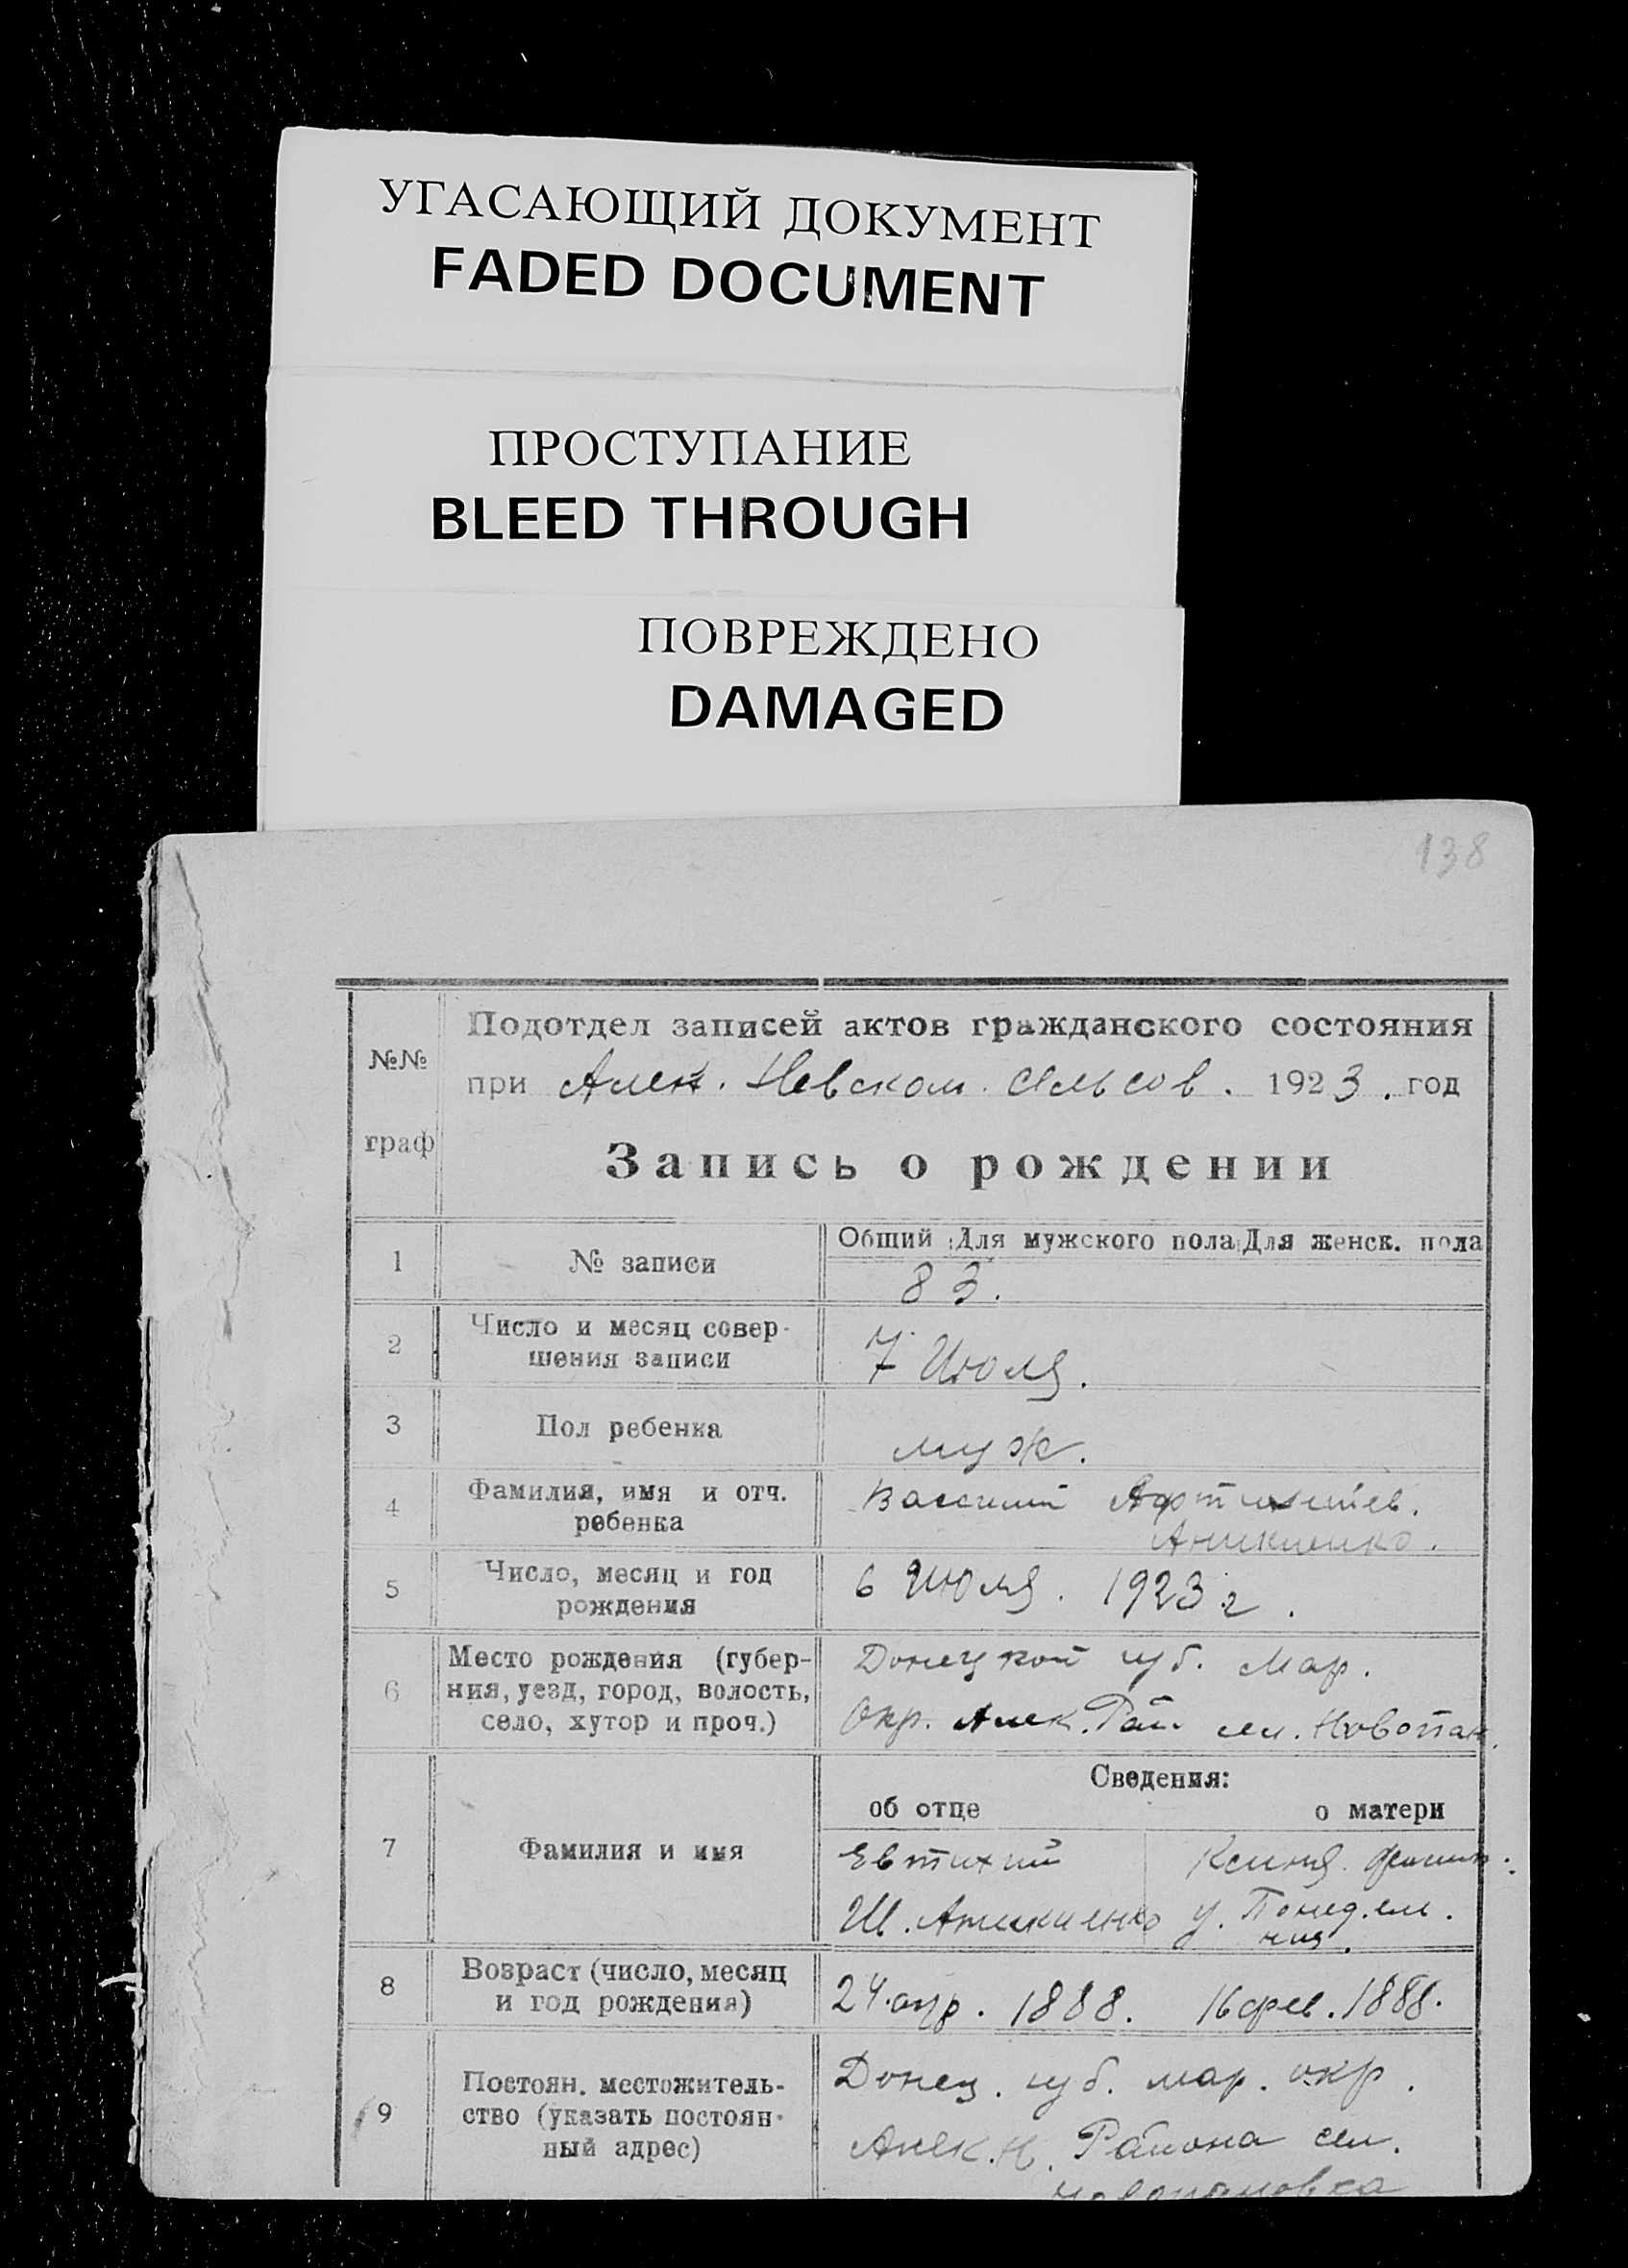 УГАСАЮЩИЙ ДОКУМЕНТ
FADED DOCUMENT
ПРОСТУПАНИЕ
BLEED THROUGH
ПОВРЕЖДЕНО
DAMAGED
138
№№ граф
Подотдел записей актов гражданского состояния
при Алек. Невском сельсов. 1923. год
Запись о рождении
Общий Для мужского пола Для женск. пола
1 № записи 83.
2 Число и месяц совер-
шения записи 7 Июля.
3 Пол ребенка муж.
4 Фамилия, имя и отч. Василий
ребенка Аникиенко.
5 Число, месяц и год 6 Июля. 1923 г.
рождения
6 Место рождения (губер- Донецкой губ. Мар.
ния, уезд, город, волость, Окр. Алек. Рай. сел. Новопан.
село, хутор и проч.)
Сведения:
об отце о матери
7 Фамилия и имя Евтихий Ксения
Аникиенко у.
8 Возраст (число, месяц 24 апр. 1888. 16 фев. 1888.
и год рождения)
9 Постоян. местожитель- Донец. губ. мар. окр.
ство (указать постоян- Алек. Н. Района сел.
ный адрес) Новопановка